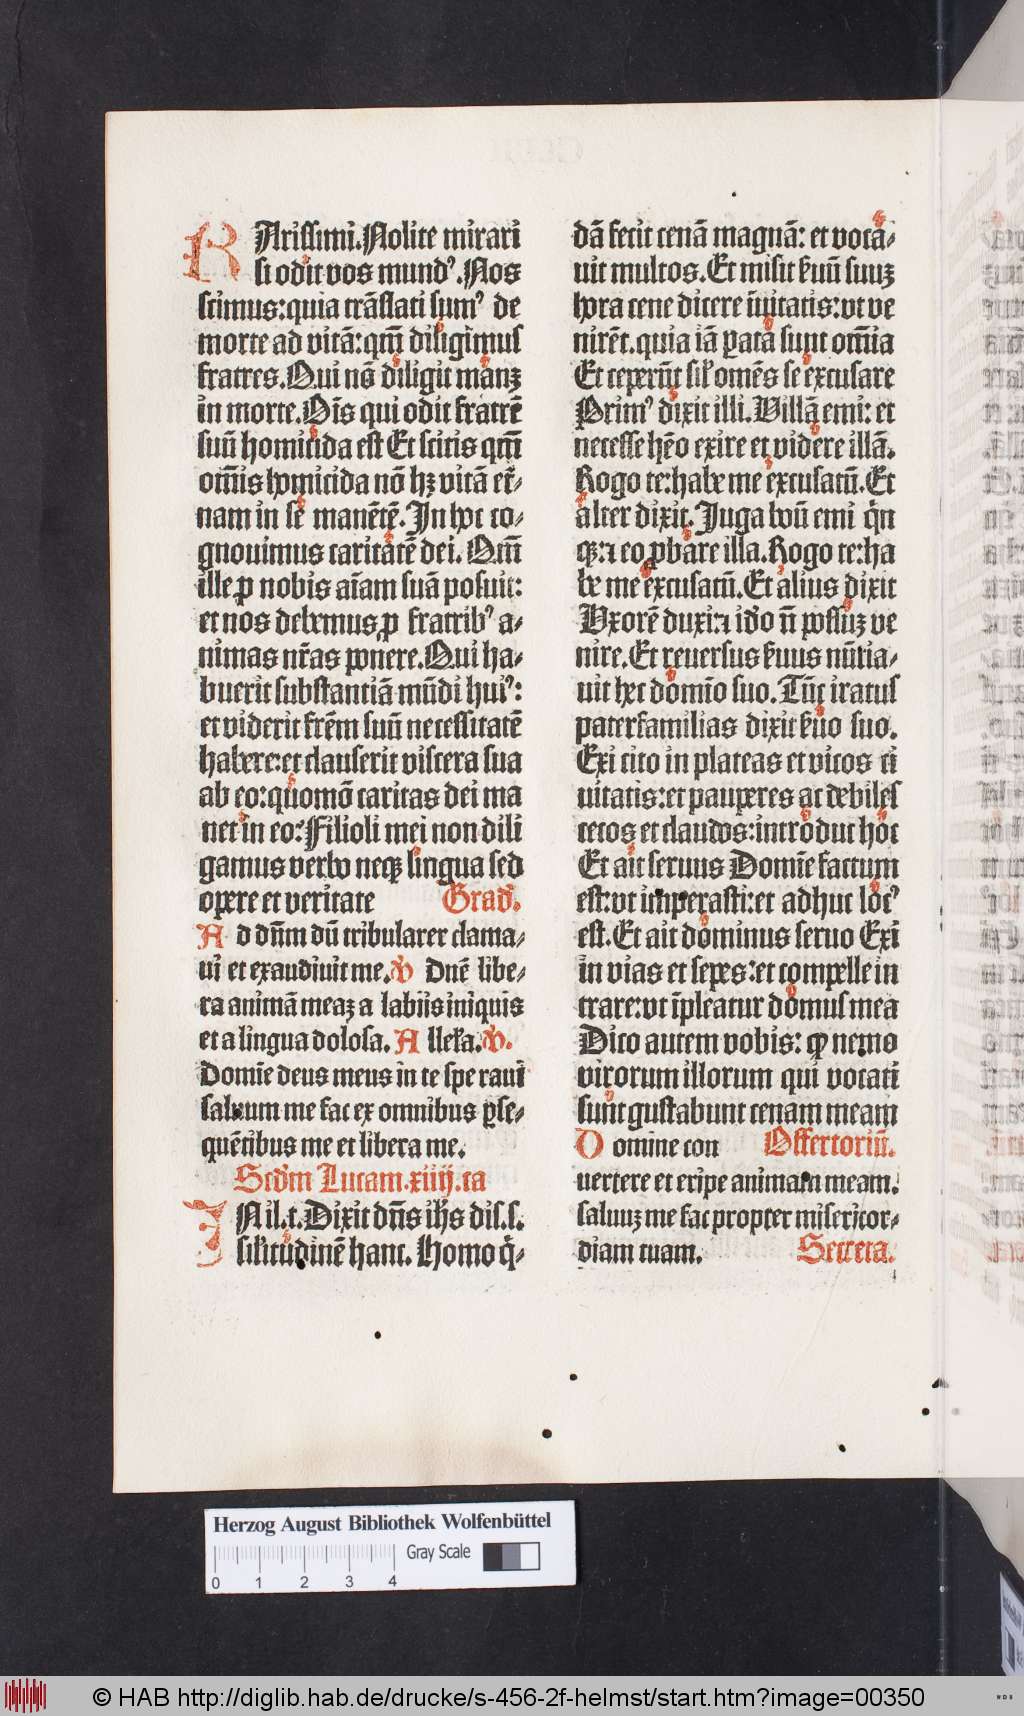 KArissimi. Nolite mirari
si odit vos mundꝰ. Nos
scimus: quia trãslati sumꝰ de
morte ad vitã: qm̃ diligimus
fratres. Qui nõ diligit manꝫ
in morte. Oĩs qui odit fratrẽ
suũ homicida est Et scitis qm̃
om̃is homicida nõ hꝫ vitã et̃⸗
nam in se manẽtẽ. In hoc co⸗
gnouimus caritatẽ dei. Qm̃
ille ꝓ nobis aĩam suã posuit:
et nos debemus ꝓ fratribꝰ a⸗
nimas nr̃as ponere. Qui ha⸗
buerit substantiã mũdi huiꝰ:
et viderit fr̃em suũ necessitatẽ
habere: et clauserit viscera sua
ab eo: quomõ caritas dei ma
net in eo? Filioli mei non dili
gamus verbo neqꝫ lingua sed
opere et veritate Grad̃.
Ad dñm dũ tribularer clama⸗
ui et exaudiuit me. ℣ Dñe libe⸗
ra animã meaꝫ a labiis iniquis
et a lingua dolosa. Alleł̃a. ℣.
Domĩe deus meus in te speraui
saluum me fac ex omnibus ꝑse⸗
quẽtibus me et libera me.
Scd̃m Lucam. xiiij. ca
IN il. t. Dixit dñs ihs̃ dis. s.
sił̃itudinẽ hanc. Homo q̃⸗
dã fecit cenã magnã: et vocã⸗
uit multos. Et misit s̃uũ suuꝫ
hora cene dicere ĩuitatis: vt ve
nirẽt. quia iã ꝑata sunt om̃ia
Et ceperũt sił̃ omẽs se excusare
Primꝰ dixit illi. Villã emi: et
necesse hẽo exire et videre illã.
Rogo te: habe me excusatũ. Et
alter dixit. Juga boũ emi q̃n
qꝫ: ⁊ eo ꝓbare illa. Rogo te: ha
be me excusatũ. Et alius dixit
Uxorẽ duxi: ⁊ id̃o ñ possuꝫ ve
nire. Et reuersus s̃uus nũtia⸗
uit hec domĩo suo. Tũc iratus
paterfamilias dixit s̃uo suo.
Exi cito in plateas et vicos ci
uitatis: et pauperes ac debiles
cecos et claudos: introduc hoc
Et ait seruus Domĩe factum
est: vt imperasti: et adhuc locꝰ
est. Et ait dominus seruo Exi
in vias et sepes: et compelle in
trare: vt ĩpleatur domus mea
Dico autem vobis: ꝙ nemo
virorum illorum qui vocati
sunt gustabunt cenam meam
Domine con Offertoriũ.
uertere et eripe animam meam.
saluuꝫ me fac propter misericor⸗
diam tuam. Secreta.
Herzog August Bibliothek Wolfenbüttel
Gray Scale
0 1 2 3 4
© HAB http://diglib.hab.de/drucke/s-456-2f-helmst/start.htm?image=00350